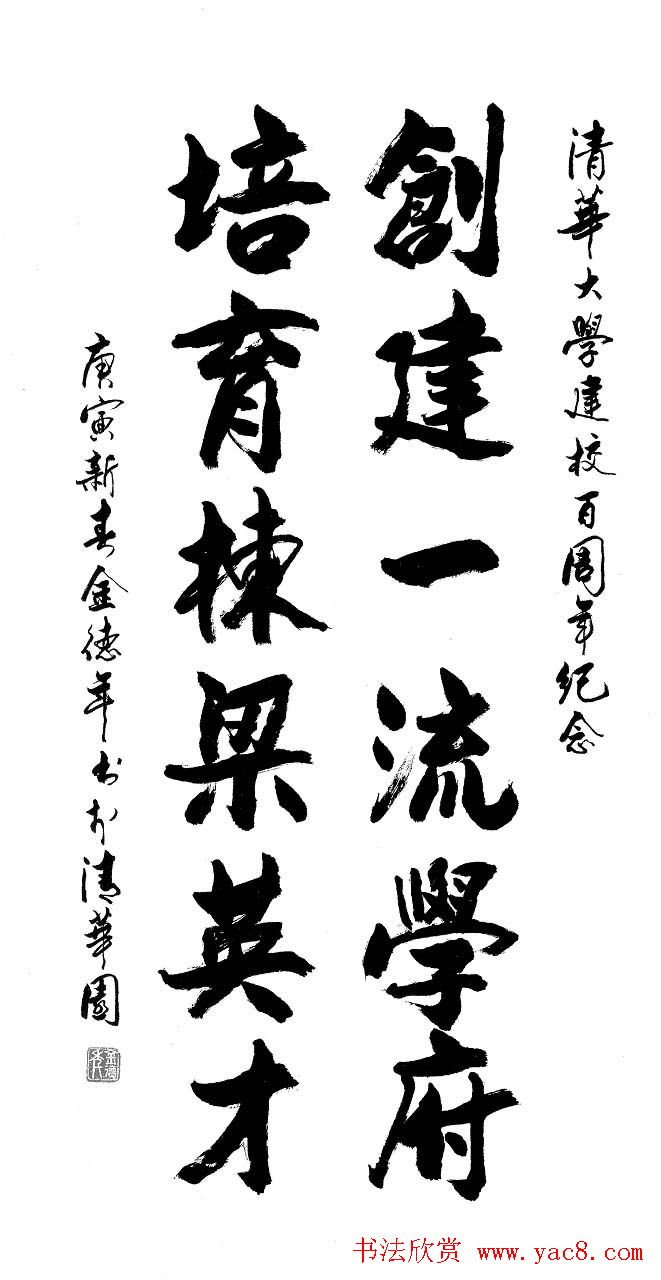 清華大學建校百周年纪念
創建一流學府
培育棟梁英才
庚寅新春金德年书於清華園
书法欣赏 www.yac8.com